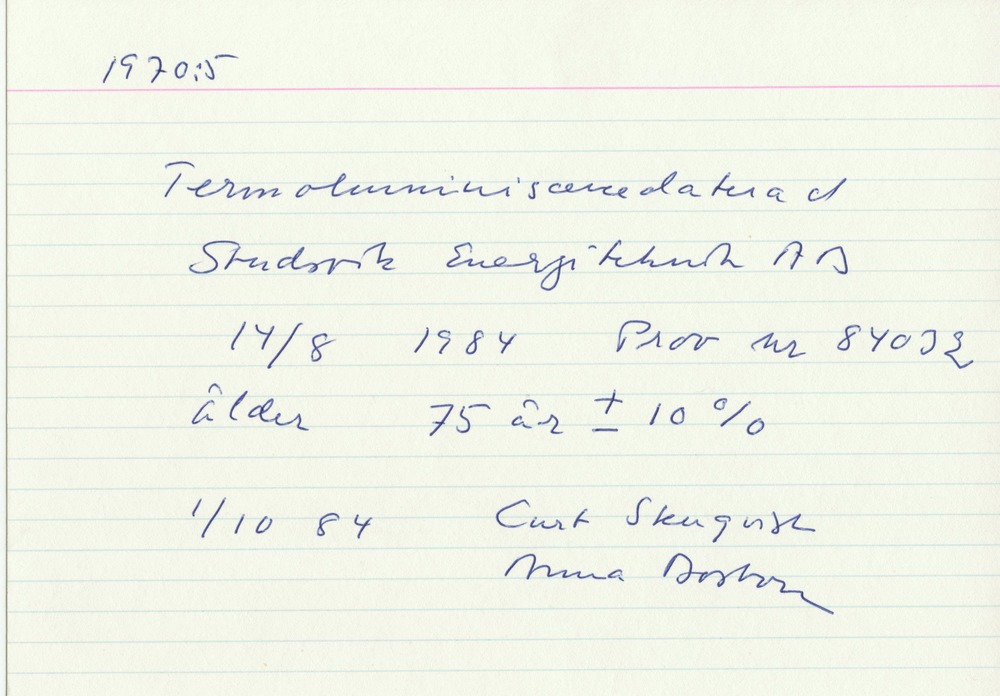 1970:5
Termoluminiscencedaterad
Studsvik Energiteknik AB
14/8 1984 Prov nr 84032
ålder 75 år ± 10 %
1/10 84 Curt
Anna